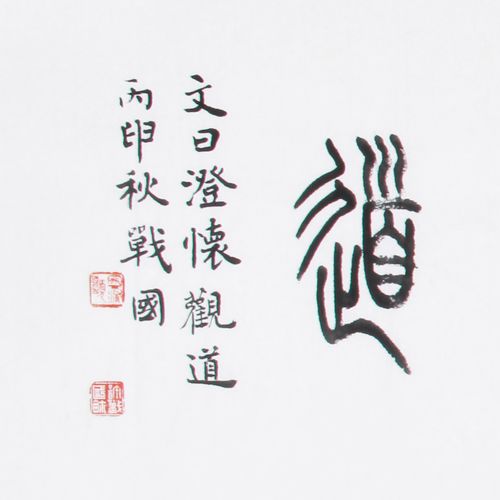 道
文曰澄懷觀道
丙申秋戰國